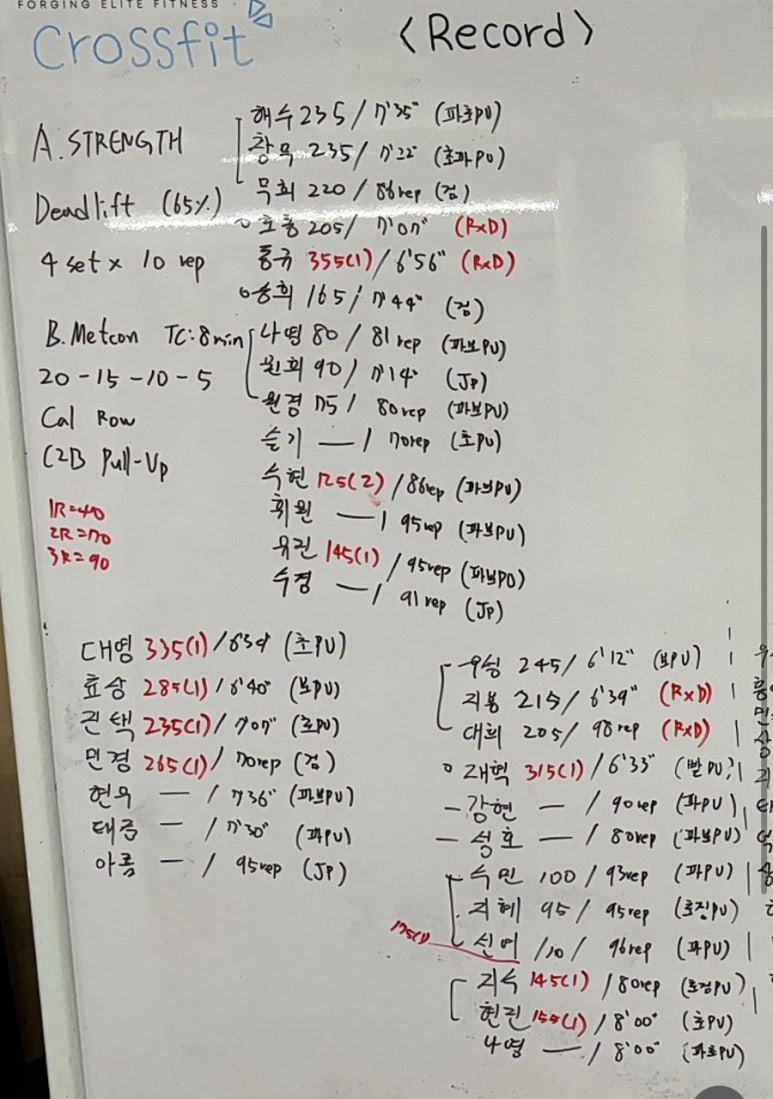 FORGING ELITE FITNESS
Crossfit
<Record>
A. STRENGTH
Deadlift (65%)
4 set x 10 rep
B. Metcon TC: 8min
20-15-10-5
Cal Row
C2B Pull-Up
1R=40
2R=70
3R=90
해수 235/7'35" (파초PU)
창묵 235/7'22" (초파PU)
묵희 220/86rep (검)
205/7'07" (RxD)
동규 355(1)/6'56" (RxD)
승희 165/7'44" (검)
나영 80/81rep (파보PU)
원희 90/7'14" (Jp)
원경 75/80rep (파보PU)
슬기 —/70rep (초PU)
수현 125(2)/86rep (파보PU)
휘원 —/95rep (파보PU)
유진 145(1)/95rep (파보PU)
수경 —/91rep (Jp)
대영 335(1)/6'39" (초PU)
효상 285(1)/6'40" (보PU)
진택 235(1)/7'07" (초PU)
민경 265(1)/70rep (검)
현우 —/7'36" (파보PU)
태금 —/7'30" (파PU)
아름 —/95rep (Jp)
우성 245/6'12" (보PU)
지용 215/6'39" (RxD)
대희 205/98rep (RxD)
재혁 315(1)/6'33" (빨PU)
-강현 —/90rep (파PU)
-성호 —/80rep (파보PU)
수민 100/93rep (파PU)
지혜 95/95rep
175(1)
신예 110/96rep (파PU)
지수 145(1)/80rep
현진 155(1)/8'00" (초PU)
나영 —/8'00" (파초PU)